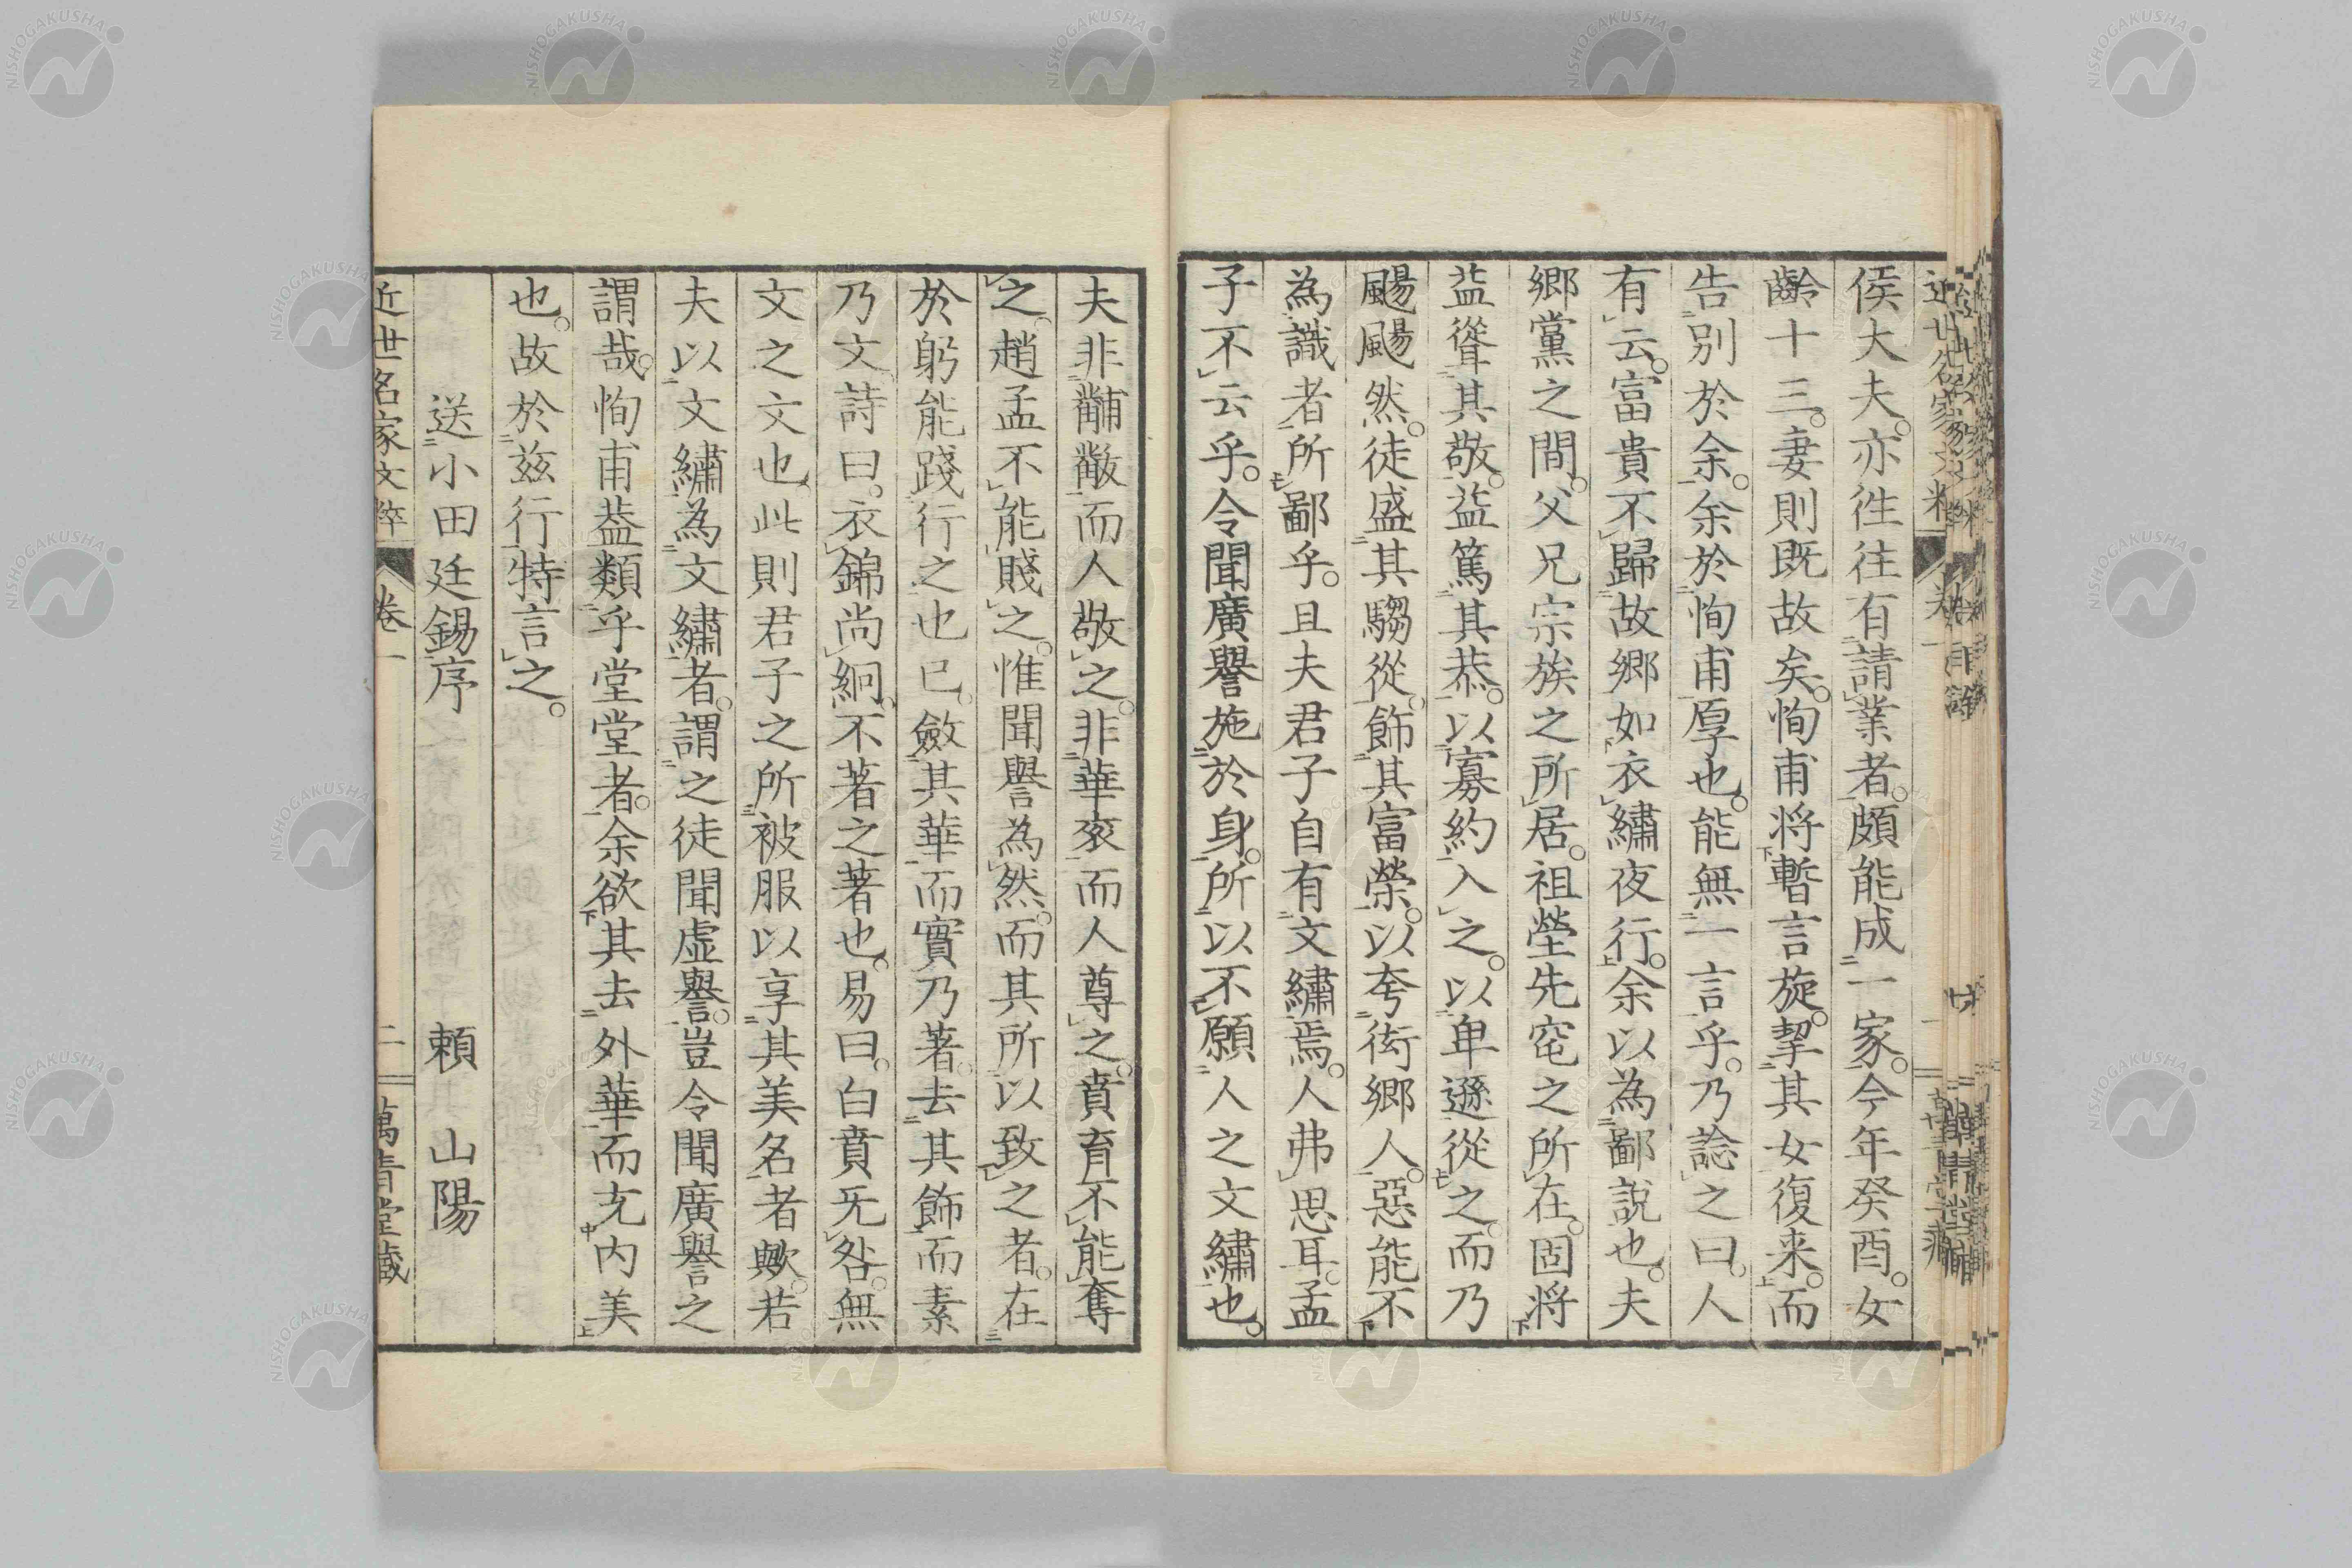 侯大夫。亦徃往有請業者。頗能成一家。今年癸酉。女
齡十三。妻則既故矣。恂甫将暫言旋。挈其女復来。而
告別於余。余於恂甫厚也。能無一言乎。乃諗之曰。人
有云。富貴不歸故郷如衣繡夜行。余以為鄙說也。夫
郷黨之間。父兄宗族之所居。祖塋先窀之所在。固将
益聳其敬。益篤其恭。以寡約入之。以卑遜從之。而乃
颺颺然。徒盛其騶從。飾其富榮。以夸衒郷人。惡能不
為識者所鄙乎。且夫君子自有文繡焉。人弗思耳。孟
子不云乎。令聞廣譽施於身。所以不願人之文繡也。
夫非黼黻而人敬之。非華衮而人尊之。賁育不能奪
之。趙孟不能賤之。惟聞譽為然。而其所以致之者。在
於躬能踐行之也已。斂其華而實乃著。去其飾而素
乃文。詩曰。衣錦尚絅。不著之著也。易曰。白賁无咎。無
文之文也。此則君子之所被服以享其美名者歟。若
夫以文繡為文繡者。謂之徒聞虚譽。豈令聞廣譽之
謂哉。恂甫葢類乎堂堂者。余欲其去外華而充内美
也。故於兹行特言之。
送小田廷錫序　頼山陽
近世名家文粹　卷一　二　萬青堂藏